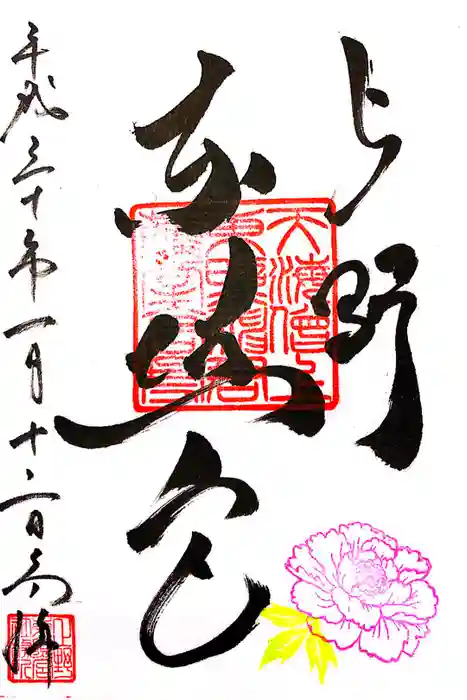 上野
東照宮
平成三十年一月十二日奉拝